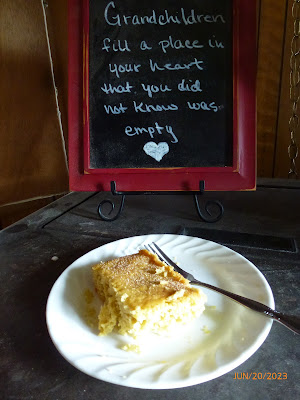 Grandchildren
fill a place in
your heart
that you did
not know was
empty
JUN/20/2023